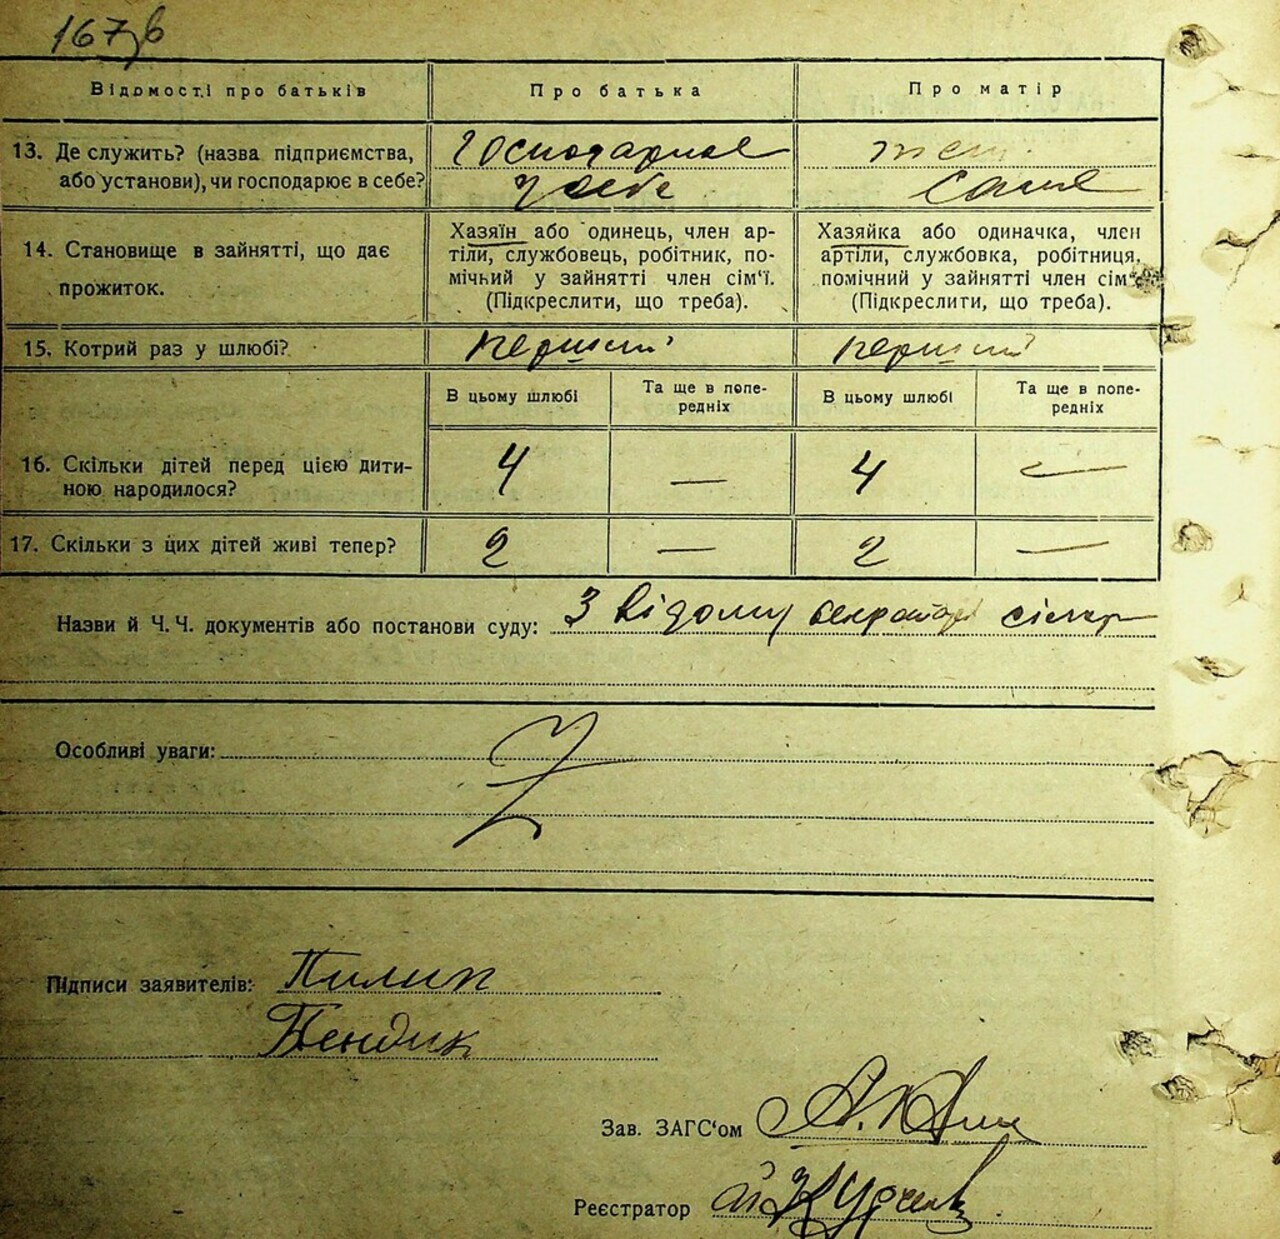 167зв
Відомості про батьків
Про батька
Про матір
13. Де служить? (назва підприємства,
або установи), чи господарює в себе?
Господарює
у себе
теж
саме
14. Становище в зайнятті, що дає
прожиток.
Хазяїн або одинець, член ар-
тіли, службовець, робітник, по-
мічный у зайнятті член сім‘ї.
(Підкреслити, що треба).
Хазяйка або одиначка, член
артіли, службовка, робітниця,
помічний у зайнятті член сім‘ї
(Підкреслити, що треба).
15. Котрий раз у шлюбі?
перший
перший
В цьому шлюбі
Та ще в попе-
редніх
В цьому шлюбі
Та ще в попе-
редніх
16. Скільки дітей перед цією дити-
ною народилося?
4
—
4
—
17. Скільки з цих дітей живі тепер?
2
—
2
—
Назви й Ч. Ч. документів або постанови суду: З відому
Особливі уваги:
Підписи заявителів: Пилип
Бендик
Зав. ЗАГС‘ом
Реєстратор